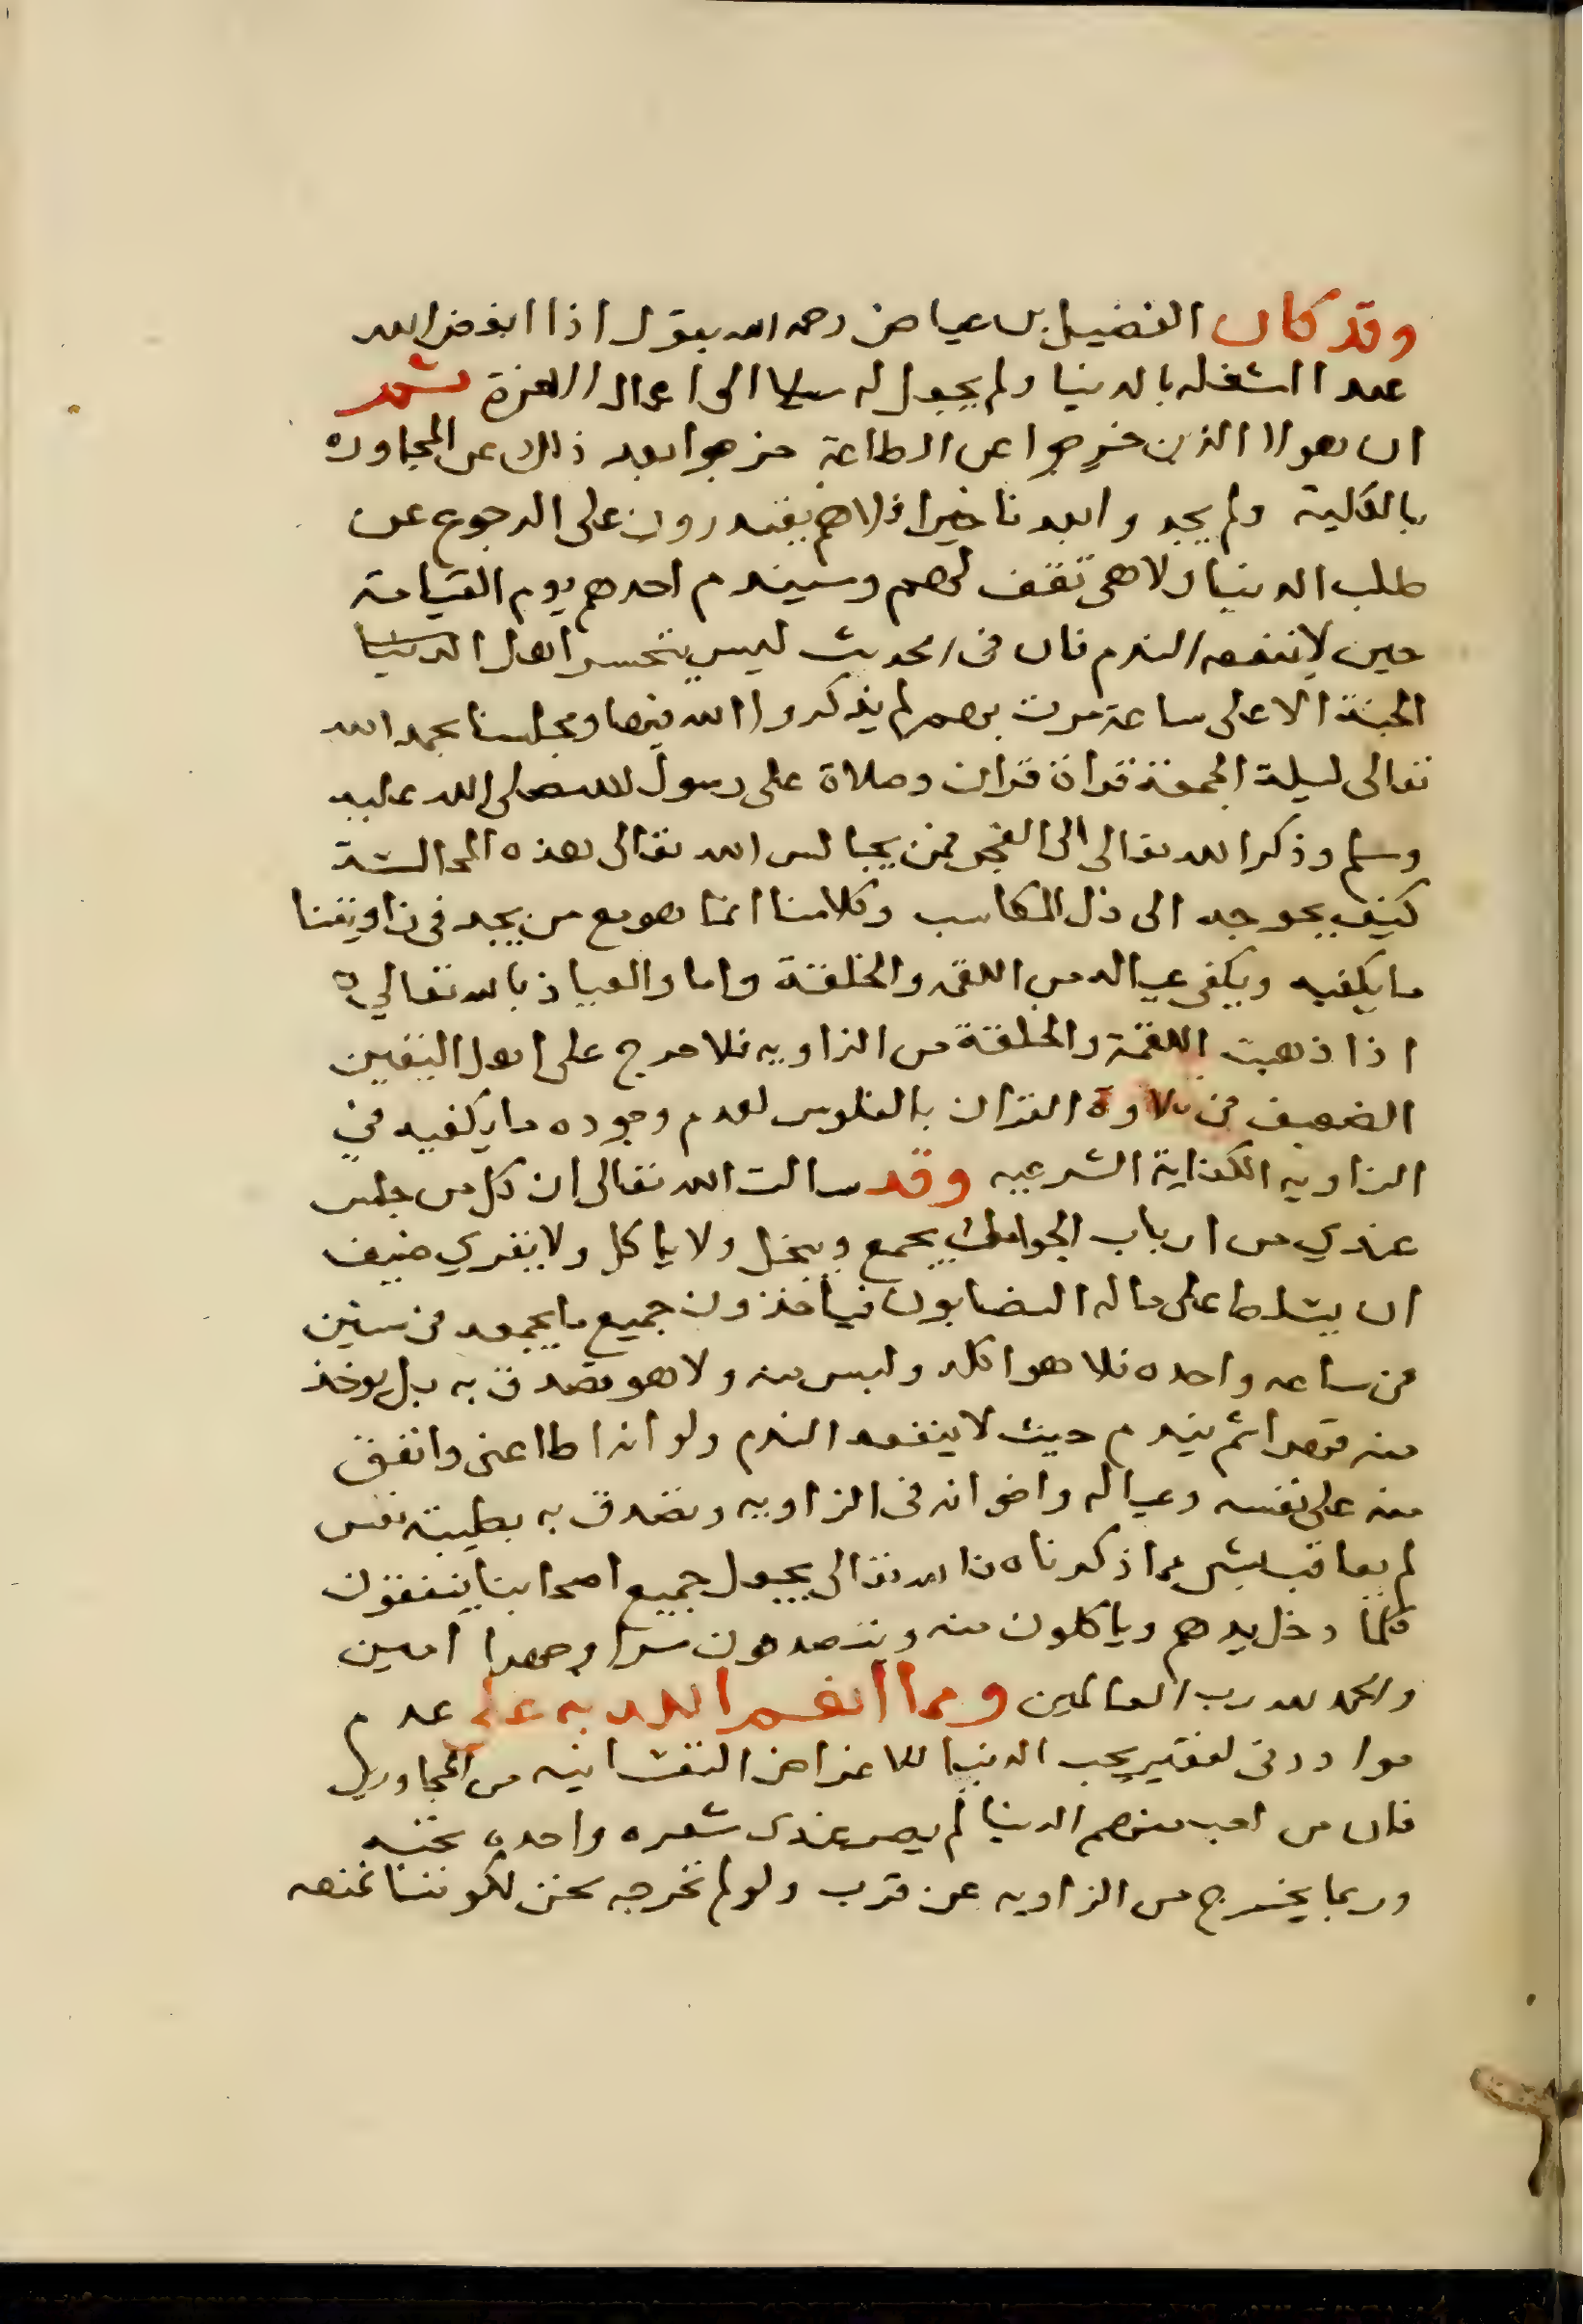 وقد كان الفضيل بن عياض رحمه الله يقول اذا ابغض الله
عبدا اشغله بالدنيا ولم يجعل له سبيلا الى اعمال الاخرة ثم
ان هولا الذين خرجوا عن الطاعة خرجوا بعد ذلك عن المجاوره
بالكلية ولم يجدوا بعدنا خيرا فلا هم يقتدرون على الرجوع عن
طلب الدنيا ولا هى تقف لهم وسيندم احدهم يوم القيامة
حين لا ينفعه الندم فان فى الحديث ليس يتحسر اهل
الجنة الا على ساعة مرت بهم لم يذكروا الله فيها ومجلسنا بحمد الله
تعالى ليلة الجمعة قراة قران وصلاة على رسول الله صلى الله عليه
وسلم وذكر الله تعالى الى الفجر فمن يجالس الله تعالى هذه المجالسة
كيف يحوجه الى ذل المكاسب وكلامنا انما هو مع من يجد فى زاويتنا
ما يكفيه ويكفى عياله من اللقمه والخلقة واما والعياذ بالله تعالى
اذا ذهبت اللقمة والخلقة من الزاويه فلا حرج على اهل اليقين
الضعيف فى تلاوة القران بالفلوس لعدم وجوده ما يكفيه في
الزاويه الكفاية الشرعيه وقد سالت الله تعالى ان كل من جلس
عندي من ارباب الجوامك يجمع ويبخل ولا ياكل ولا يقري ضيف
ان يسلط على ماله النصابون فياخذون جميع ما يجمعه فى سنين
فى ساعه واحده فلا هو اكله ولبس منه ولا هو تصدق به بل يوخذ
منه قهرا ثم يندم حيث لا ينفعه الندم ولو انه اطاعنى وانفق
منه على نفسه وعياله واخوانه فى الزاويه وتصدق به بطيبة نفس
لم يعاقب بشى مما ذكرناه فالله تعالى يجعل جميع اصحابنا ينفقون
كلما دخل يدهم وياكلون منه ويتصدقون سرا وجهرا امين
والحمد لله رب العالمين ومما انعم الله به علي عدم
موادتى لفقير يحب الدنيا للاغراض النفسانيه من المجاورين
فان من احب منهم الدنيا لم يصر عندى شعره واحده تحبه
وربما يخرج من الزاويه عن قرب ولو لم نخرجه نحن لكوننا نمنعه